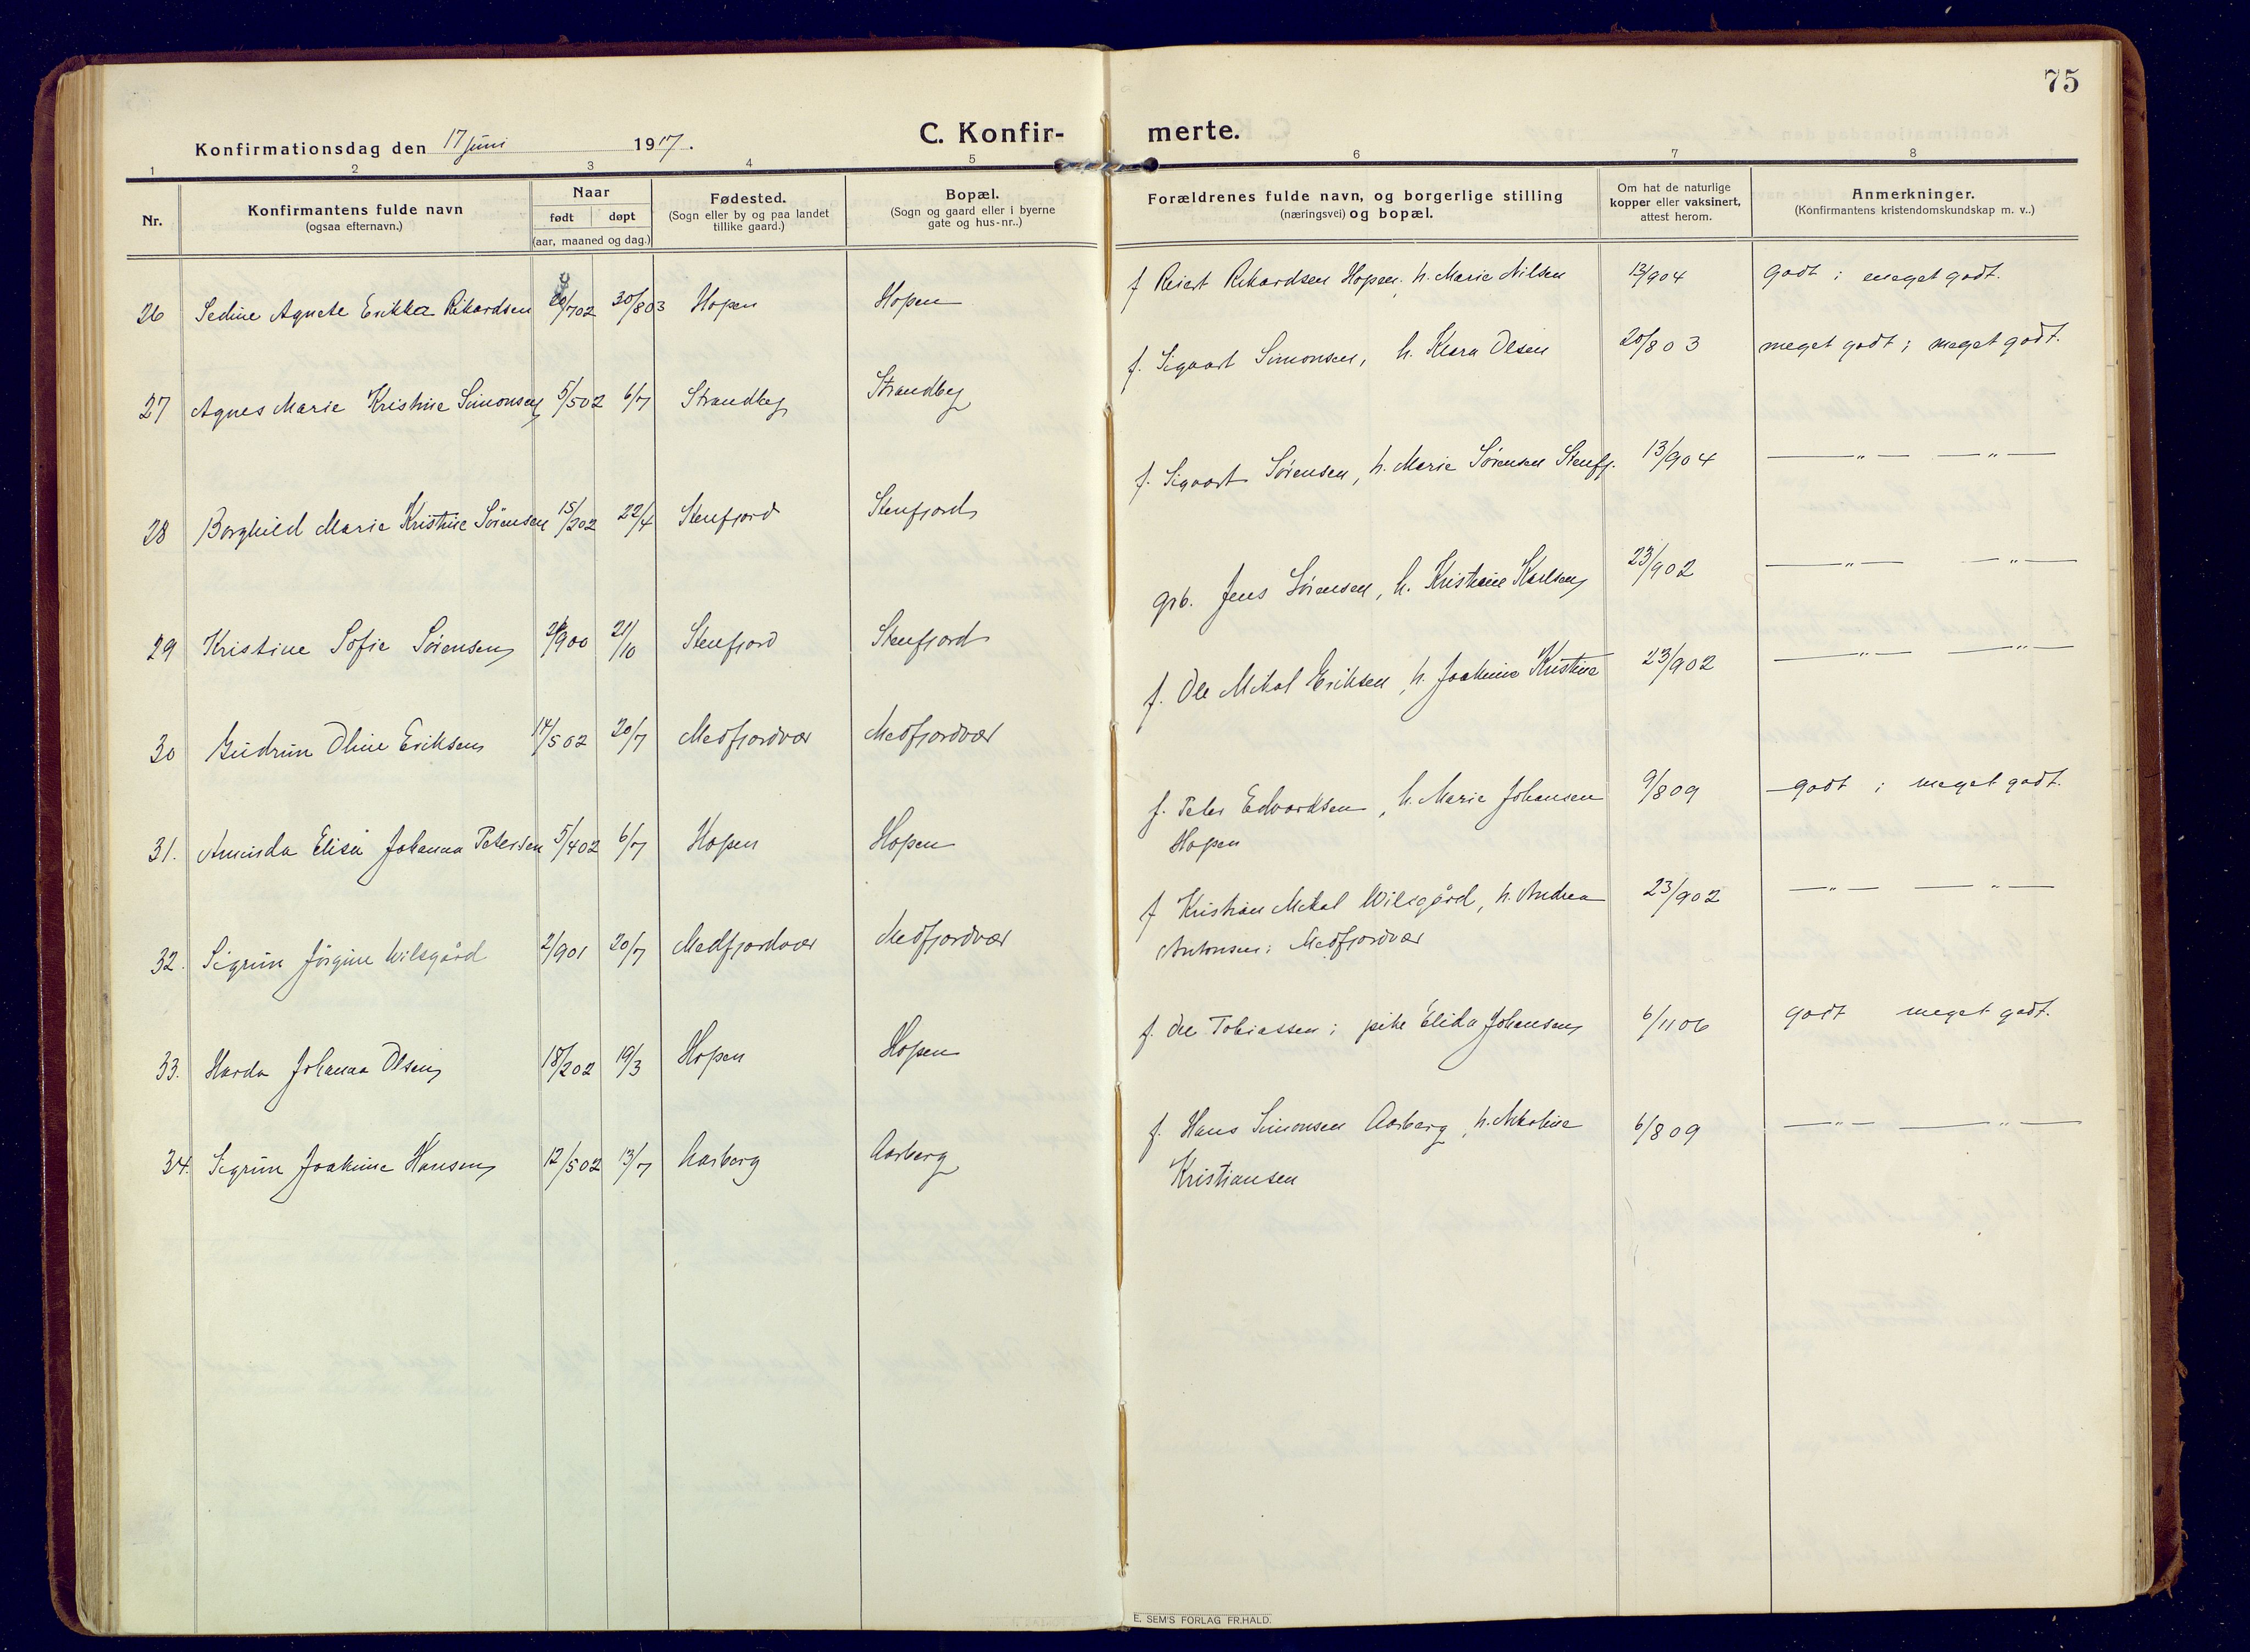 75
Konfirmationsdag den 17 juni 1917.
C. Konfir- merte.
1 2 3 4 5 6 7 8
Nr.
Konfirmantens fulde navn
(ogsaa efternavn.)
Naar
født døpt
(aar, maaned og dag.)
Fødested.
(Sogn eller by og paa landet
tillike gaard.)
Bopæl.
(Sogn og gaard eller i byerne
gate og hus-nr..)
Forældrenes fulde navn, og borgerlige stilling
(næringsvei) og bopæl.
Om hat de naturlige
kopper eller vaksinert,
attest herom.
Anmerkninger.
(Konfirmantens kristendomskundskap m. v..)
26 Sedine Agnete Erikka Rikardsen /702 30/803 Hopen Hopen f Reiert Rikardsen Hopen. h. Marie Nilsen 13/904 godt ; meget godt.
27 Agnes Marie Kristine Simonsen 5/502 6/7 Strandbg Strandbg f. Sigvart Simonsen, h. Klara Olsen 20/803 meget godt ; meget godt.
28 Borghild Marie Kristine Sörensen 15/202 22/4 Stenfjord Stenfjord f. Sigvart Sörensen, h. Marie Sörensen Stenfj. 13/904 —„— —„—
29 Kristine Sofie Sörensen /900 21/10 Stenfjord Stenfjord grb. Jens Sörensen, h. Kristine Karlsen 23/902 —„— —„—
30 Gudrun Oline Eriksen 14/502 20/7 Medfjordvær Medfjordvær f. Ole Mikal Eriksen, h. Joakime Kristine 23/902 —„— —„—
31. Aminda Elisa Johanna Petersen 5/402 6/7 Hopen Hopen f. Peter Edvardsen, h. Marie Johansen 9/809 godt ; meget godt.
Hopen
32. Sigrun Jörgine Wilsgård 2/901 20/7 Medfjordvær Medfjordvær f Kristian Mikal Wilsgård, h. Andrea 23/902 —„— —„—
Antonsen; Medfjordvær
33. Harda Johanna Olsen 18/202 19/3 Hopen Hopen f. Ole Tobiassen ; pike Elida Johansen 6/1106 godt meget godt.
34. Sigrun Joakime Hansen 12/502 13/7 Aarberg Aarberg f. Hans Simonsen Aarberg, h. Nikoline 6/809 —„— —„—
Kristiansen
E. SEM'S FORLAG FR.HALD.